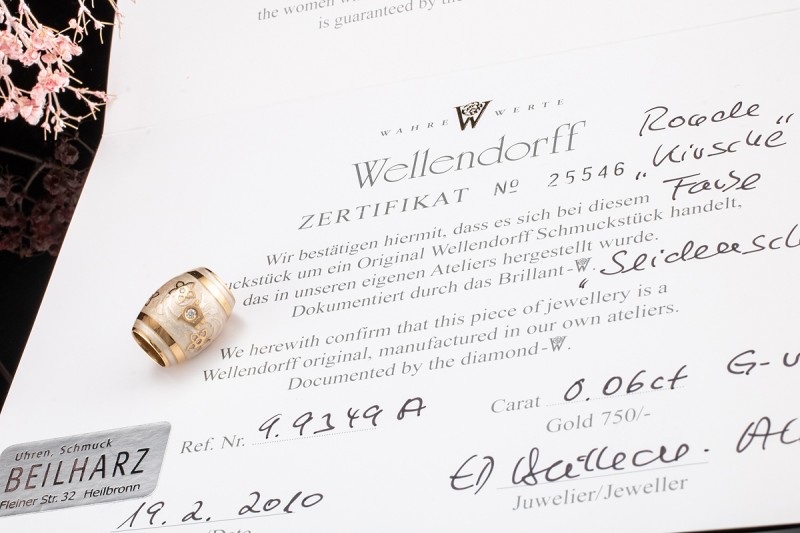 the women
is guaranteed by the
WAHRE W WERTE
Wellendorff
ZERTIFIKAT No 25546
Ronde
„Kirsche"
Farbe
Wir bestätigen hiermit, dass es sich bei diesem
uckstück um ein Original Wellendorff Schmuckstück handelt,
das in unseren eigenen Ateliers hergestellt wurde.
Dokumentiert durch das Brillant-W.
"Seidensch
We herewith confirm that this piece of jewellery is a
Wellendorff original, manufactured in our own ateliers.
Documented by the diamond-W.
Ref. Nr. 9.9349 A
Carat 0.06ct G-
Gold 750/-
Uhren, Schmuck
BEILHARZ
Fleiner Str. 32 Heilbronn
Juwelier/Jeweller
19.2.2010
/Date